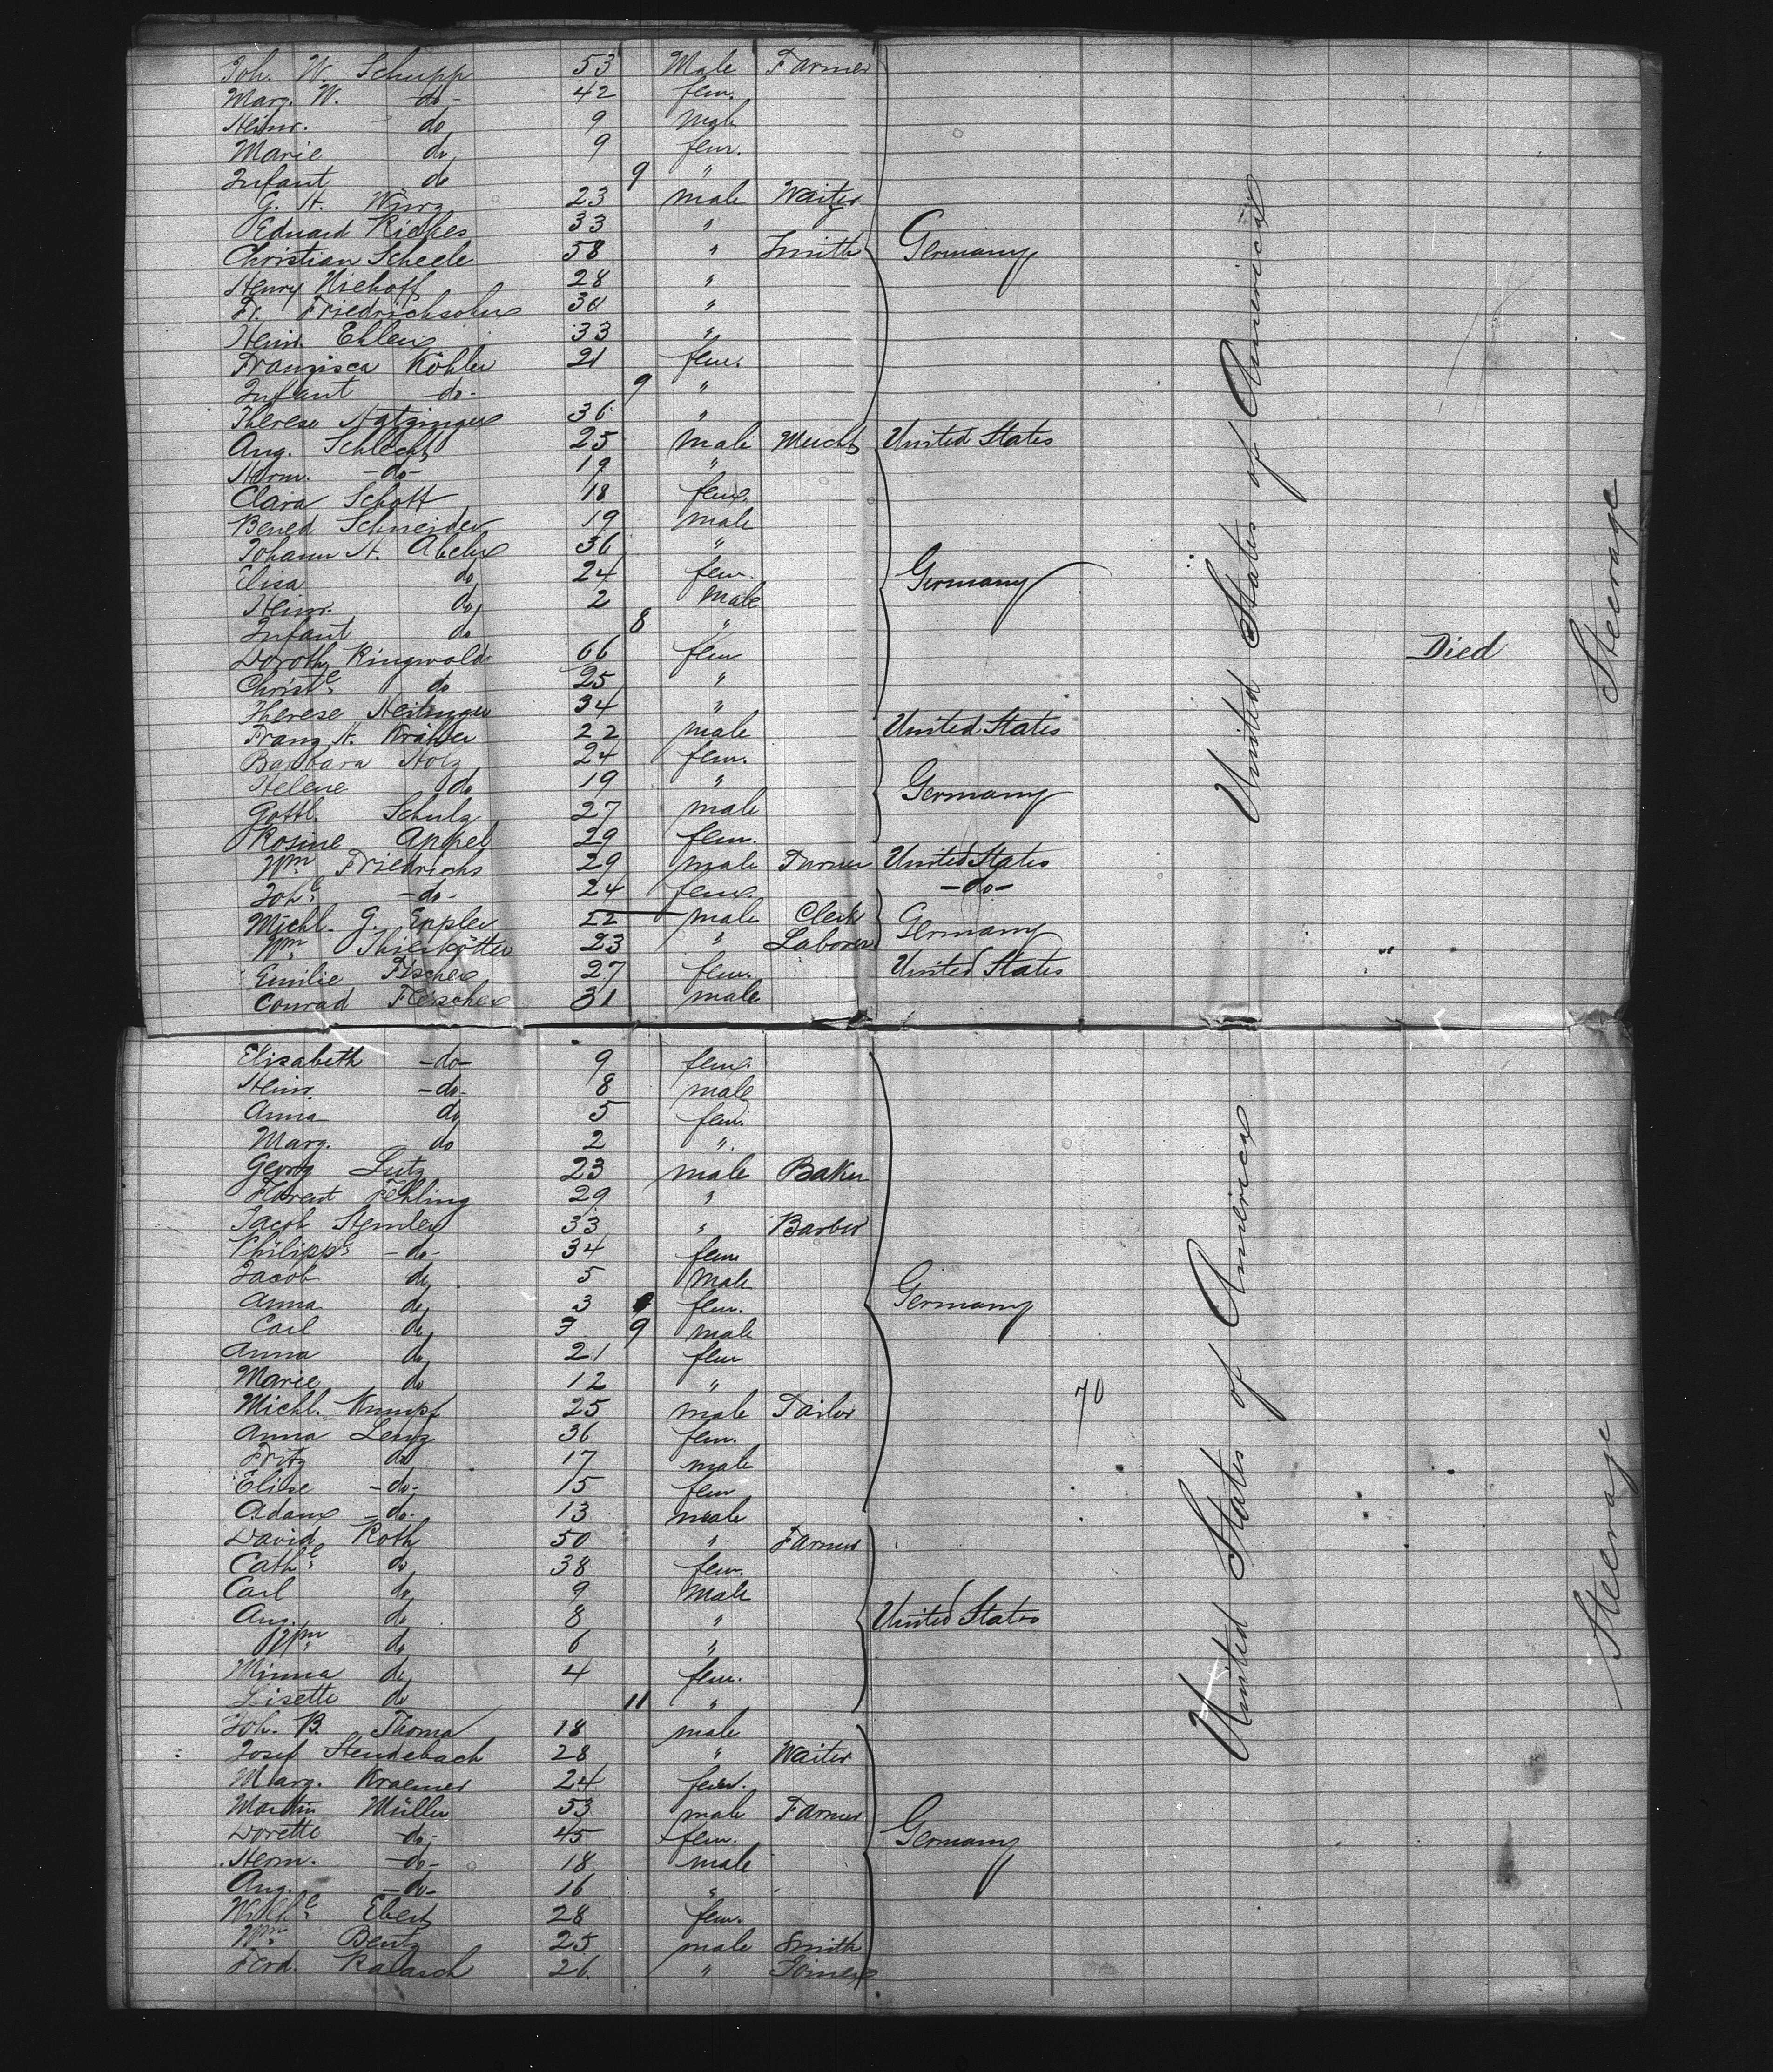 Joh. W. Schupp 53 Male Farmer
Marg. W. -do- 42 fem.
Heinr. do 9 Male
Marie do 9 fem.
Infant do 9 "
G. H. Würz 23 male Waiter
Eduard Rickes 33 "
Christian Scheele 58 " Smith Germany
Henry Niehoff 28 "
Fr. Friedrichsohn 30 "
Heinr. Ehlers 33 "
Franzisca Köhler 21 fem.
Infant -do- 9 "
Therese 36 "
Aug. Schlecht 25 male Mercht United States
Herm. -do- 19 "
Clara Schott 18 fem.
Bened Schneider 19 male
Johann H. Abeln 36 "
Elisa do 24 fem. Germany
Heinr. do 2 Male
Infant do 8 "
Doroth. Ringwald 66 fem Died
Christe do 25 "
Therese 34 "
Franz H. Krämer 22 male United States
Barbara Hotz 24 fem.
Helene do 19 " Germany
Gottl. Schulz 27 male
Rosine Appel 29 fem.
Wm Friedrichs 29 male Turner United States
Johe -do- 24 fem. -do-
Michl. G. Eppler 22 male Clerk Germany
Wm Thierkötter 23 " Laborer
Emilie Fischer 27 fem. United States
Conrad Fleischer 31 male
United States of America
Steerage
Elisabeth -do- 9 fem.
Heinr. -do- 8 male
Anna do 5 fem.
Marg. do 2 "
Georg Lutz 23 male Baker
Florent Fehling 29 "
Jacob Stemler 33 " Barber
Philippe -do- 34 fem
Jacob do 5 Male
Anna do 3 fem. Germany
Carl do 3 9 male
Anna do 21 fem
Marie do 12 "
Michl. Kumpf 25 male Tailor 70
Anna Lenz 36 fem.
Fritz do 17 male
Elise -do- 15 fem
Adam -do- 13 male
David Roth 50 " Farmer
Cathe do 38 fem.
Carl do 9 Male
Aug. do 8 " United States
Wm do 6 "
Minna do 4 fem.
Lisette do 11 "
Joh. B. Thoma 18 male
Josef Stendebach 28 " Waiter
Marg. Kraemer 24 fem.
Martin Müller 53 male Farmer
Dorette -do- 45 fem. Germany
Herm. -do- 18 male
Aug. -do- 16 "
Wilhe Ebert 28 fem.
Wm Bentz 25 male Smith
Ferd. Kalasch 26 " Joiner
United States of America
Steerage